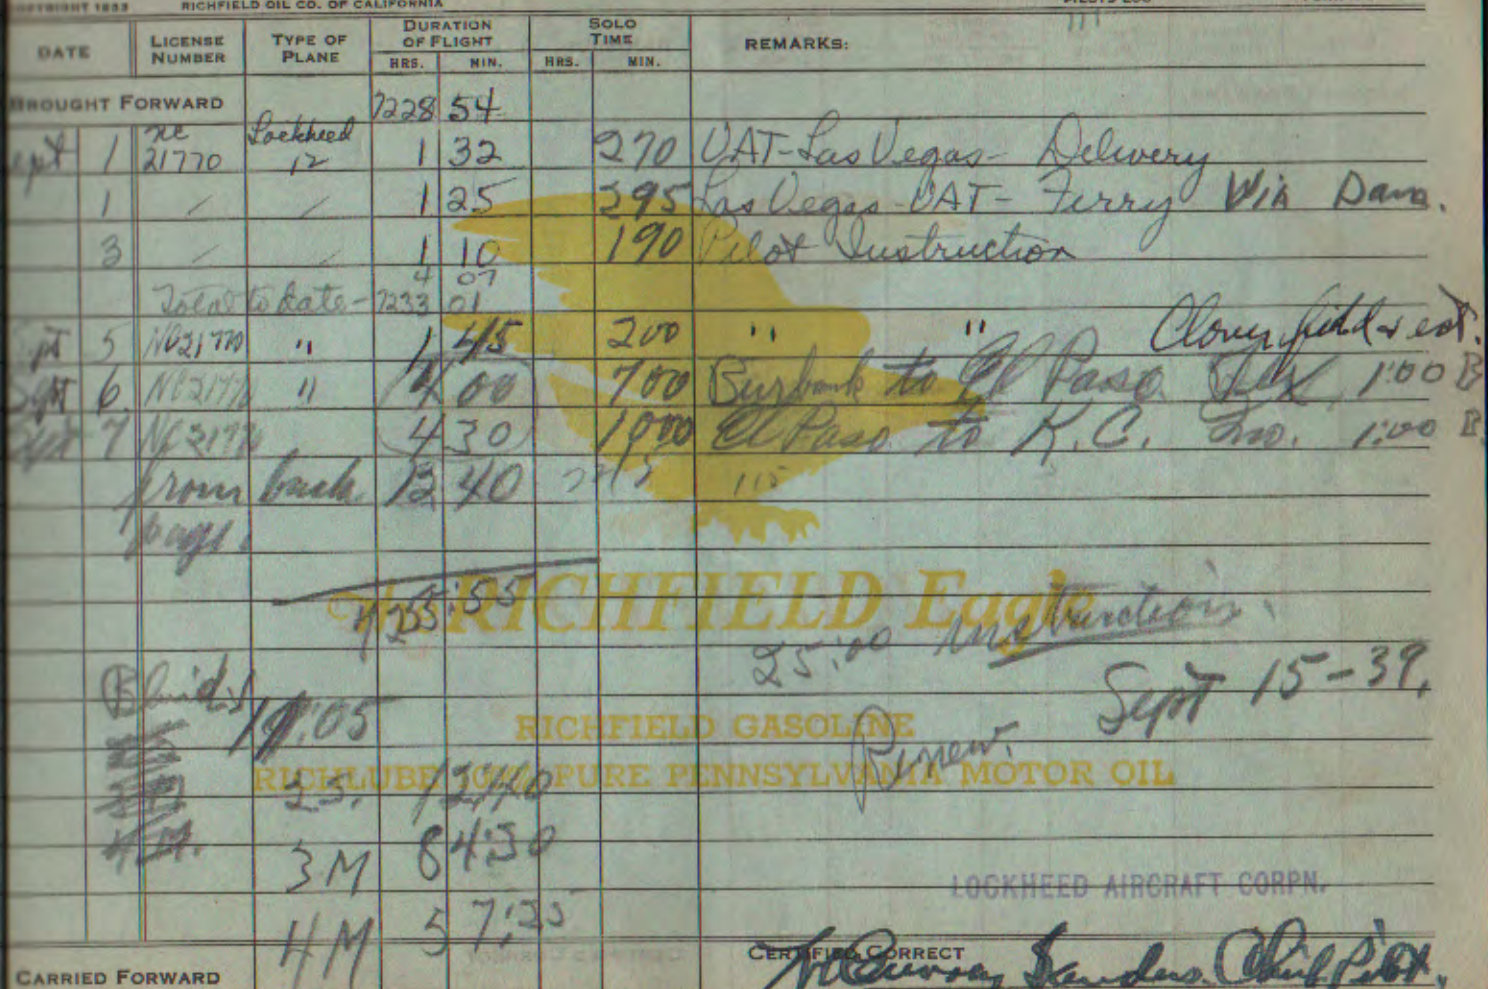 COPYRIGHT 1933 RICHFIELD OIL CO. OF CALIFORNIA
DATE LICENSE NUMBER TYPE OF PLANE DURATION OF FLIGHT HRS. MIN. SOLO TIME HRS. MIN. REMARKS:
BROUGHT FORWARD 7228 54
Sept 1 NC 21770 Lockheed 12 1 32 270 UAT-Las Vegas- Delivery
1 / / 1 25 295 Las Vegas-UAT- Ferry Via Dam.
3 / / 1 10 190 Pilot Instruction
4 07
Total to date- 7233 01
Sept 5 NC21770 " 1 45 200 " " Clover field & ect.
Sept 6 NC21770 " 4 00 700 Burbank to El Paso Tex 1:00 B
Sept 7 NC21770 4 30 1000 El Paso to K.C. Mo. 1:00 B
from back 13 40
page.
RICHFIELD Eagle
25:00 instruction.
Blind
:05
Sept 15-39.
RICHFIELD GASOLINE
Renew.
RICHLUBE PURE PENNSYLVANIA MOTOR OIL
3M 8 4:30
LOCKHEED AIRCRAFT CORPN.
4M 5 7:25
CERTIFIED CORRECT
CARRIED FORWARD Sanders. Chief Pilot.